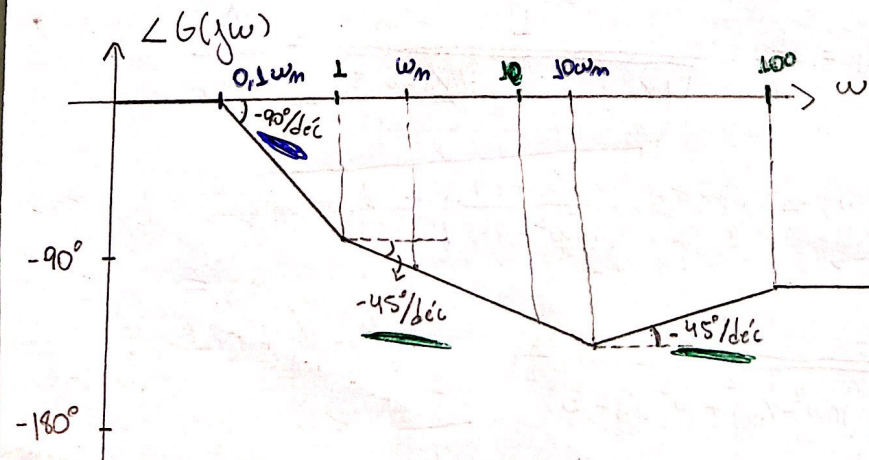 ∠G(jω)
0,1ωn 1 ωn 10 10ωn 100
ω
-90°/déc
-90°
-45°/déc
-45°/déc
-180°